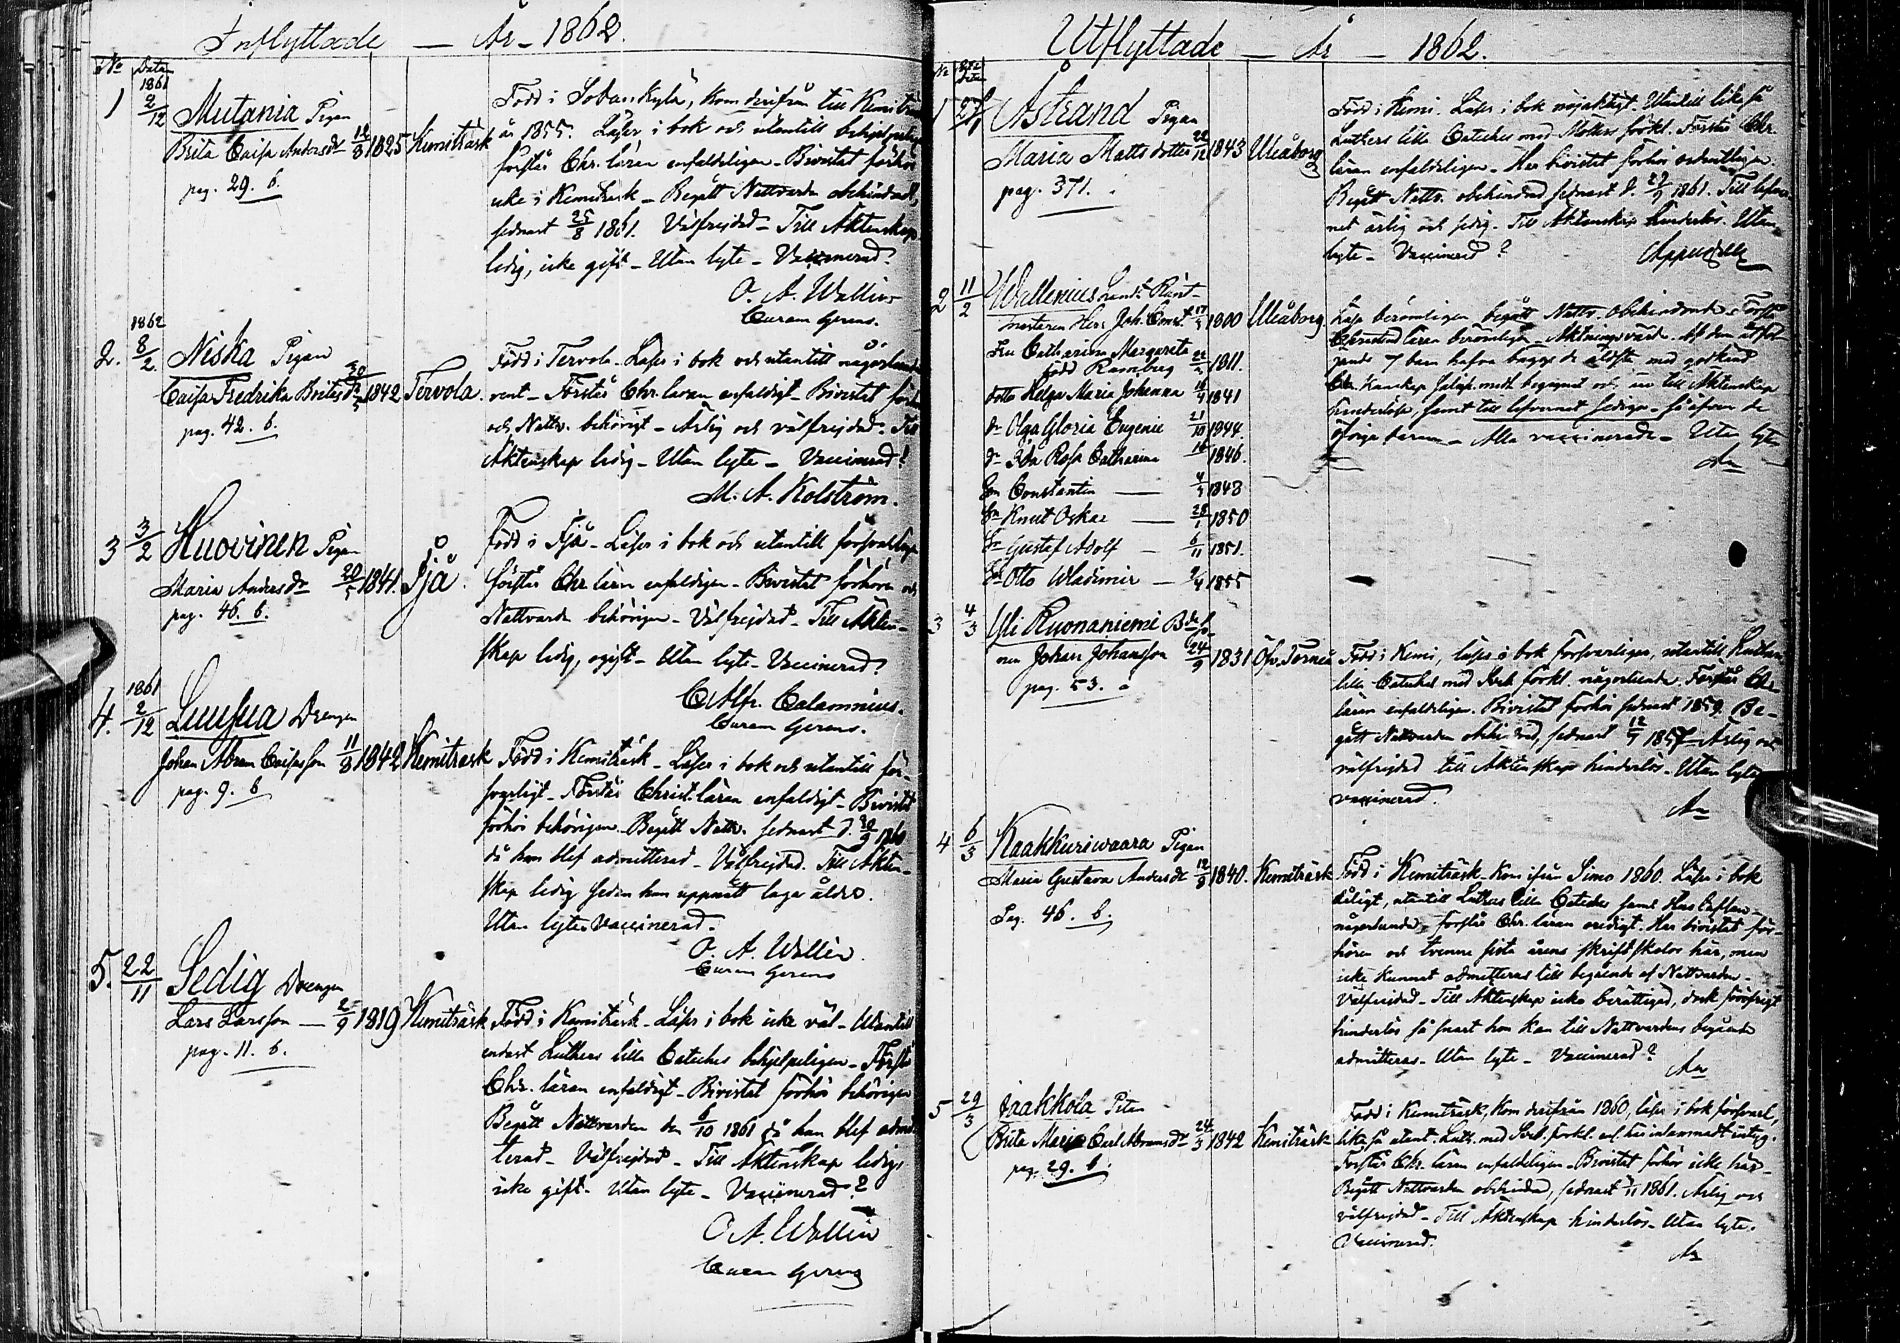 Inflyttade — År - 1862.
No Datum
1861
1 2/12 Mutania Pigan
Brita Caisa Andersdr 12/3 1825 Kemiträsk
pag. 29. b.
Född i Sodankylä, kom derifrån till Kemiträsk
år 1855. Läser i bok och utantill behjelpeligen
förstår Chr. läran enfaldeligen - Bivistat förhör
icke i Kemiträsk - Begått Nattvarden obehindrad,
sednast 25/8 1861. Välfrejdad - Till Äktenskap
ledig, icke gift - Utan lyte - Vaccinerad?
O. A. Wallin
Curam Gerens.
1862
2. 8/2 Niska Pigan
Caisa Fredrika Britas dr 1842 Tervola.
pag. 42. b.
Född i Tervola. Läser i bok och utantill någorlunda
rent - Förstår Chr. läran enfaldigt - Bivistat förhör
och Nattv. behörigt - Ärlig och välfrejdad - Till
Äktenskap ledig - Utan lyte - Vaccinerad?
M. A. Kolström.
3 3/2 Huovinen Pigan
Maria Andersdr 20/5 1841. Ijå.
pag. 46. b.
Född i Ijå - Läser i bok och utantill försvarliga
förstår Chr läran enfaldigen - Bivistat förhören och
Nattvarden behörigen - Välfrejdad - Till Äkten-
skap ledig, ogift - Utan lyte - Vaccinerad?
C Alfr. Calamnius.
Curam Gerens.
1861
4. 2/12 Luusua Drengen
Johan Abram Caisasson 11/8 1842 Kemiträsk
pag. 9. b
Född i Kemiträsk - Läser i bok och utantill för-
svarligt - Förstår Christ. läran enfaldigt - Bivistat
förhör behörigen - Begått Nattv. sednast d. 30/9 1860
då han blef admitterad - Välfrejdad. Till Äkten-
skap ledig sedan han uppnått laga ålder.
Utan lyte Vaccinerad.
O. A. Wallin
Curam Gerens
5. 22/11 Sedig Drengen
Lars Larsson — 25/9 1819 Kemiträsk
pag. 11. b.
Född i Kemiträsk - Läser i bok icke väl - Utantill
endast Luthers lilla Cateches behjelpeligen - Förstår
Chr. läran enfaldigt - Bivistat förhör behörigen
Begått Nattvarden den 6/10 1861 då han blef admit-
terad - Välfrejdad - Till Äktenskap ledig,
icke gift - Utan lyte - Vaccinerad?
O A. Wallin
Curam Gerens
Utflyttade — År — 1862.
No
1 Åstrand Pigan
Maria Mattsdotter 22/12 1843 Uleåborg
pag. 371.
Född i Kemi. Läser i bok nöjaktigt. Utantill lika så
Luthers lilla Cateches med Möllers förkl. Förstår Chr.
läran enfaldeligen. Har bivistat förhör ordentligen.
Begått Nattv. obehindrad sednast d. 29/9 1861. Till lefver-
net ärlig och sedig. Till Äktenskap hinderlös. Utan
lyte - Vaccinerad?
Appelgren
2 11/2 Wallenius Ränt-
mästaren Herr Joh. Ernst 1800 Uleåborg.
Fru Catharina Margareta
född Ramberg 1811.
dotter Helga Maria Johanna 1841
dr Olga Gloria Eugenie 21/10 1844.
dr Ida Rosa Catharina 1846.
Son Constantin — 1848
Sn Knut Oskar — 28/1 1850
Sn Gustaf Adolf — 6/11 1851.
Sn Otto Wladimir — 1855
Läsa berömligen begått Nattv. obehindrade. Förstå
Christendomsläran berömligen - Aktningsvärde. Af den
7 barn hafva begge de äldsta med godkänd
Chr. kunskap Salig. medl. begagnat och äro till Äktenskap
hinderlösa, samt till lefvernet sediga - så äfven de
öfriga barnen - Alla vaccinerade - Utan lyte
An
3 4/3 Yli Ruonaniemi Bdes-
on Johan Johansson 24/9 1831 Öfv. Torneå
pag. 53. a
Född i Kemi, läser i bok försvarligen, utantill Luthers
lilla Cateches med förkl. någorlunda. Förstår Chr
läran enfaldeligen. Bivistat förhör sednast 1859. Be-
gått Nattvarden obehindrad, sednast 12/7 1857 - Ärlig och
välfrejdad till Äktenskap hinderlös - Utan lyte
vaccinerad.
An
4 6/3 Kaakkuriwaara Pigan
Maria Gustava Andersdr 12/9 1840. Kemiträsk
Pag. 46. b.
Född i Kemiträsk - Kom ifrån Simo 1860. Läser i bok
dåligt, utantill Luthers lilla Cateches samt Hustaflan
någorlunda, förstår Chr. läran oredigt. Har bivistat för-
hören och tvenne sista årens skriftskolor här, men
icke kunnat admitteras till begående af Nattvarden -
Välfrejdad - Till Äktenskap icke berättigad, dock föröfrigt
hinderlös så snart hon kan till Nattvardens begående
admitteras. Utan lyte - Vaccinerad?
An
5 29/3 Jaakkola Pigan
Brita Maria Carl Abramsdr 24/3 1842 Kemiträsk
pag. 29. b.
Född i Kemiträsk, Kom derifrån 1860, läser i bok försvarl.
lika så utant. Luth. med Seb. förkl. enl. här inlemnadt intyg.
Förstår Chr. läran enfaldeligen - Bivistat förhör icke här -
Begått Nattvarden obehindrad, sednast 1861. Ärlig och
välfrejdad - Till Äktenskap hinderlös - Utan lyte.
Vaccinerad.
An